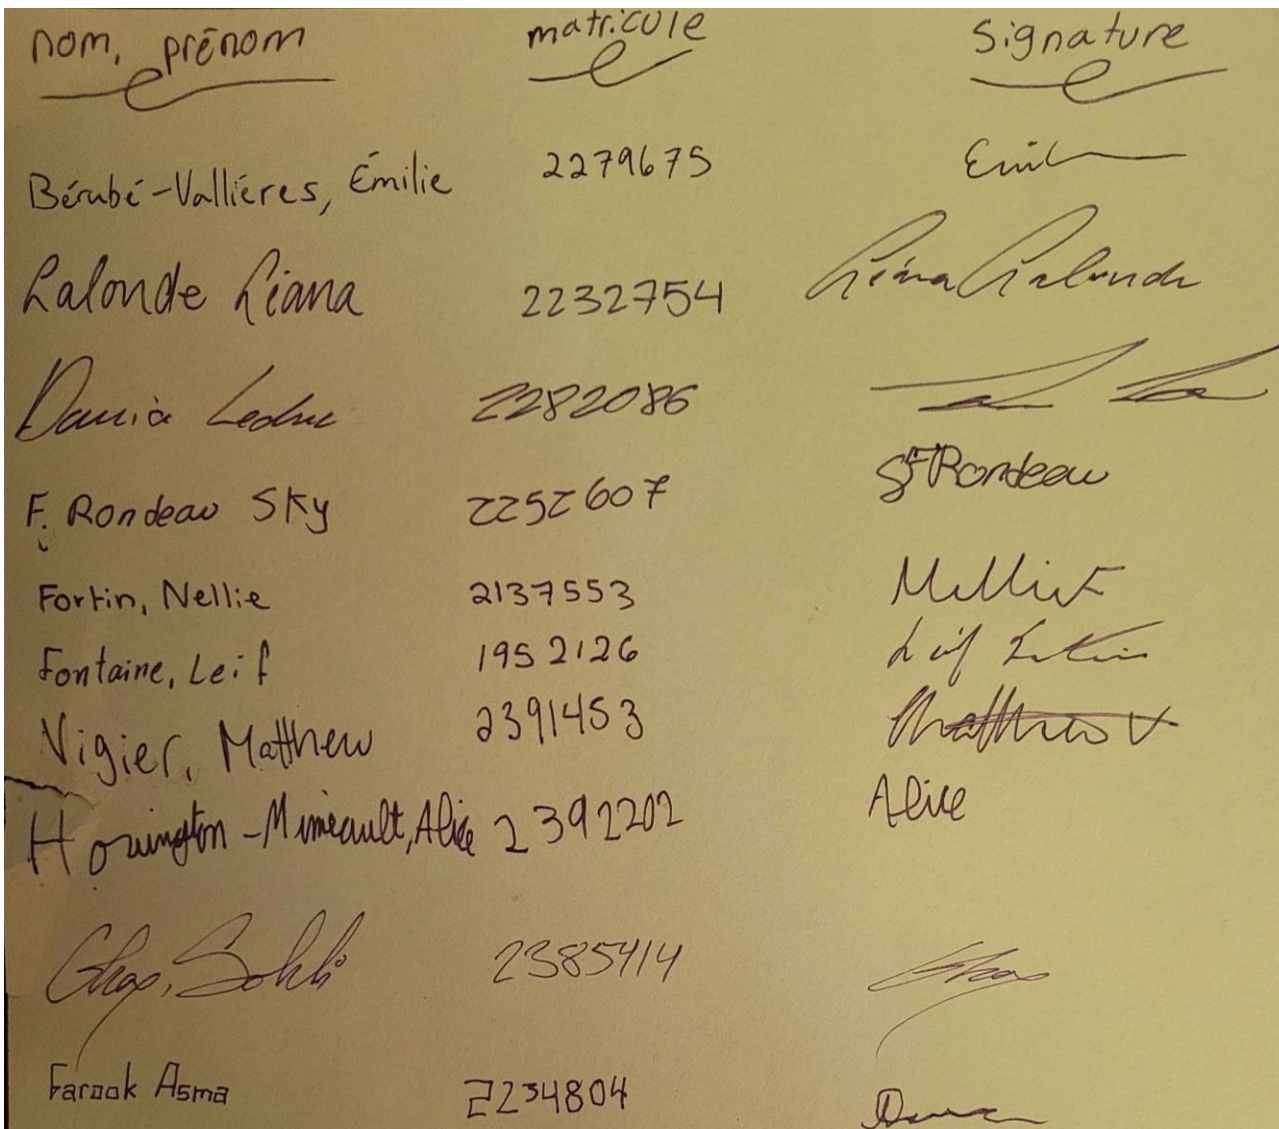 nom, prénom matricule signature
Bérubé-Vallières, Émilie 2279675 Emil
Lalonde Liana 2232754 Liana Lalonde
Dania Leduc 2282086
F. Rondeau Sky 2252607 SFRondeau
Fortin, Nellie 2137553 Nellie F
Fontaine, Leif 1952126 Leif
Vigier, Matthew 2391453 Matthew V
Horvington-Mimeault, Alice 2392202 Alice
2385414
Farook Asma 2234804